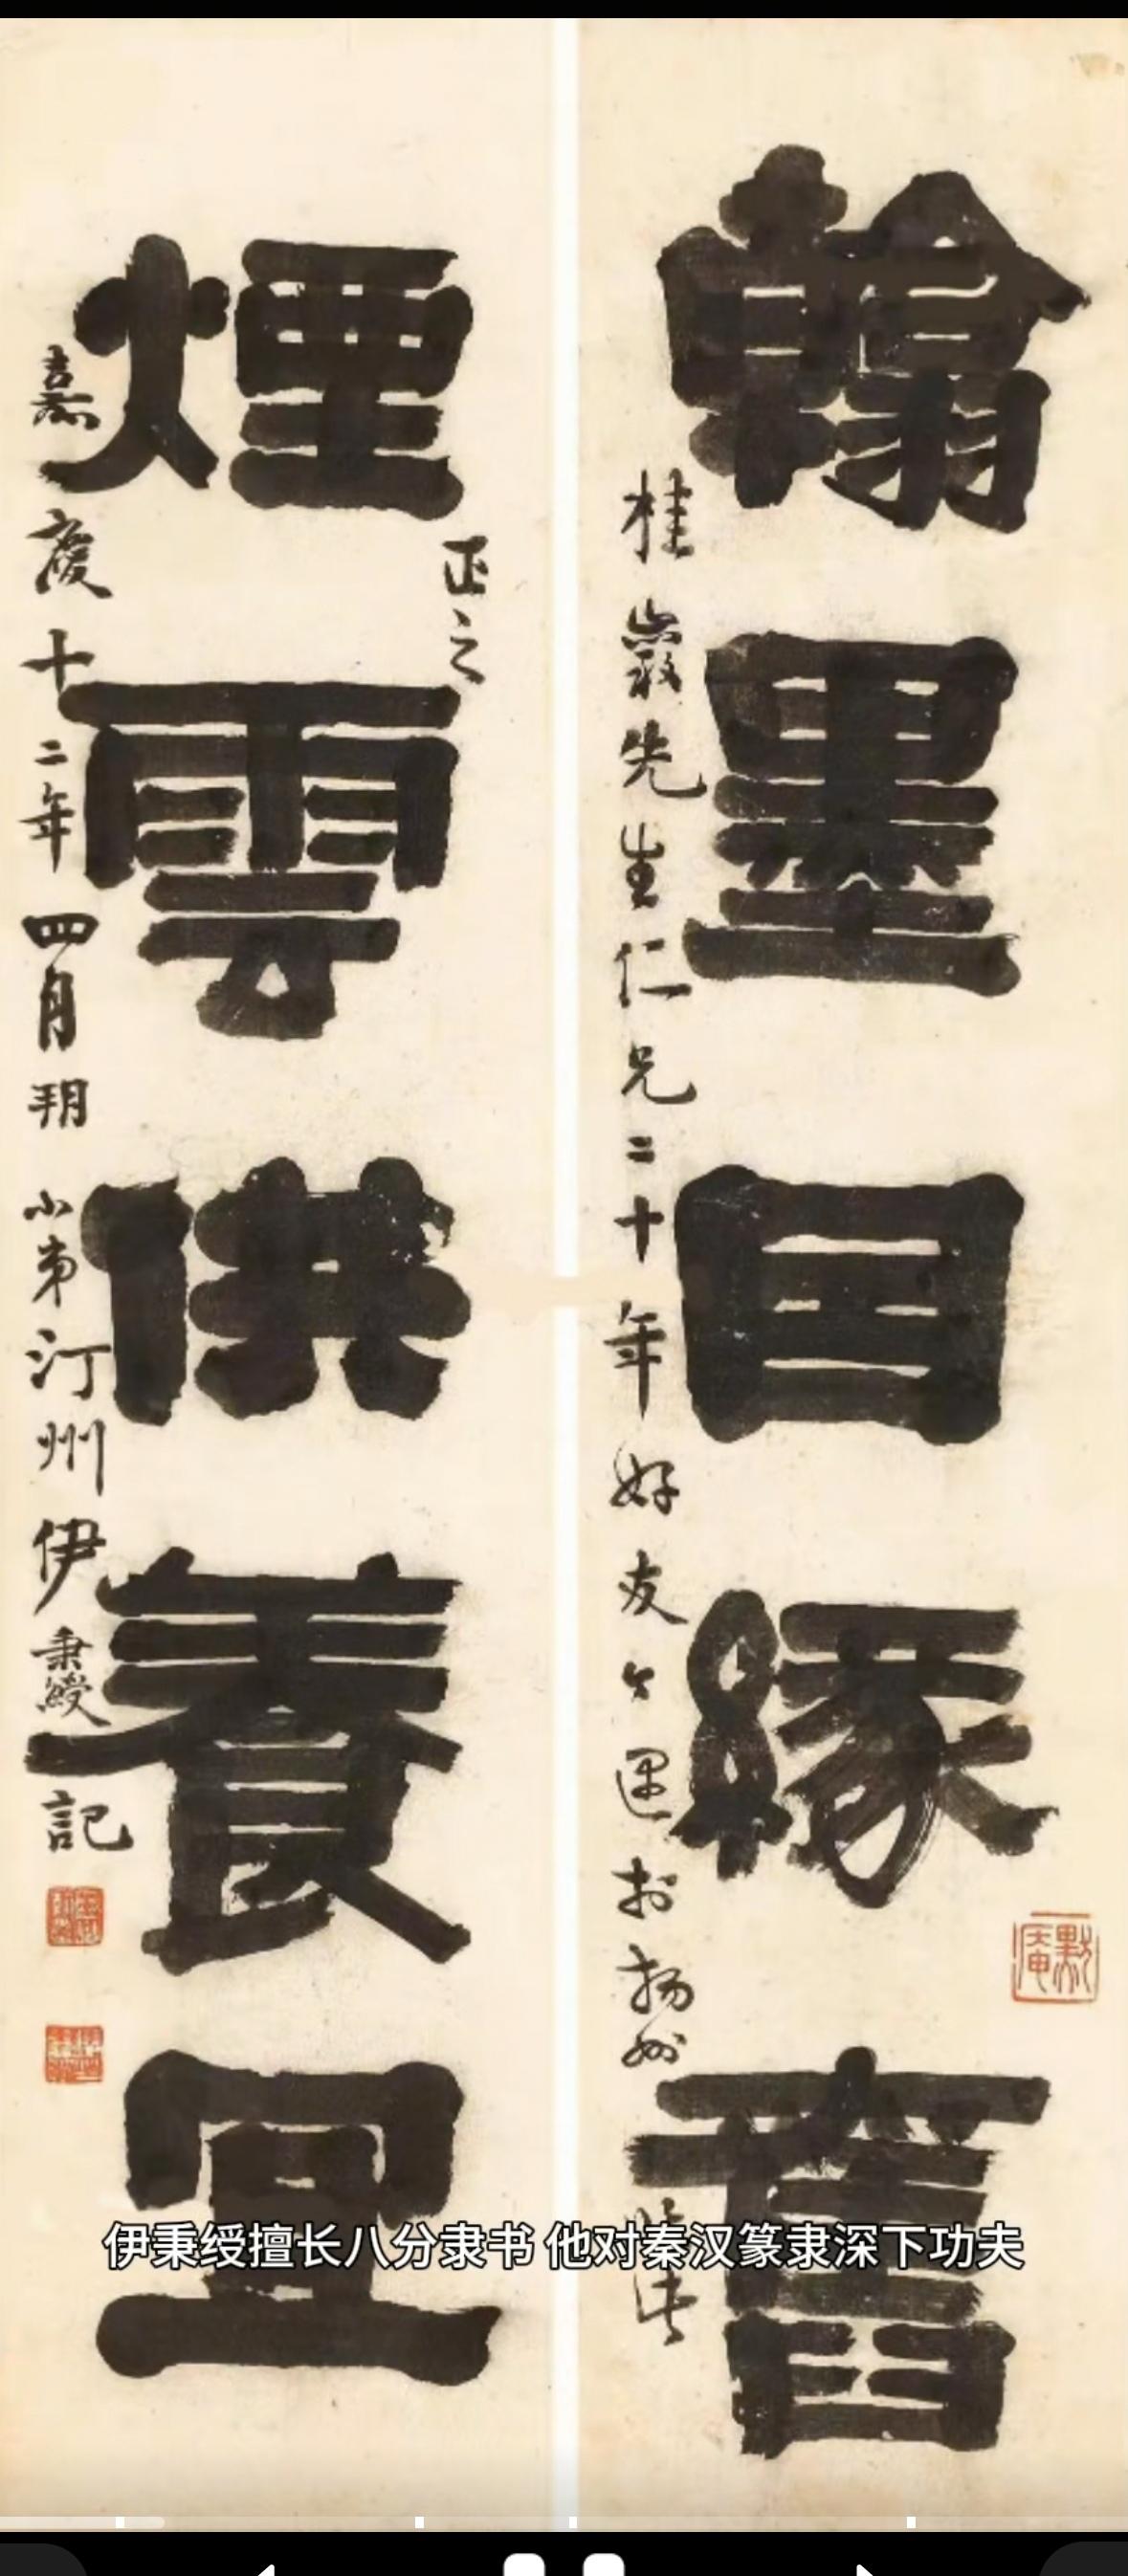 翰墨因緣舊
桂巖先生仁兄二十年好友今遇於揚州
正之
煙雲供養宜
嘉慶十二年四月朔小弟汀州伊秉綬記
伊秉绶擅长八分隶书 他对秦汉篆隶深下功夫